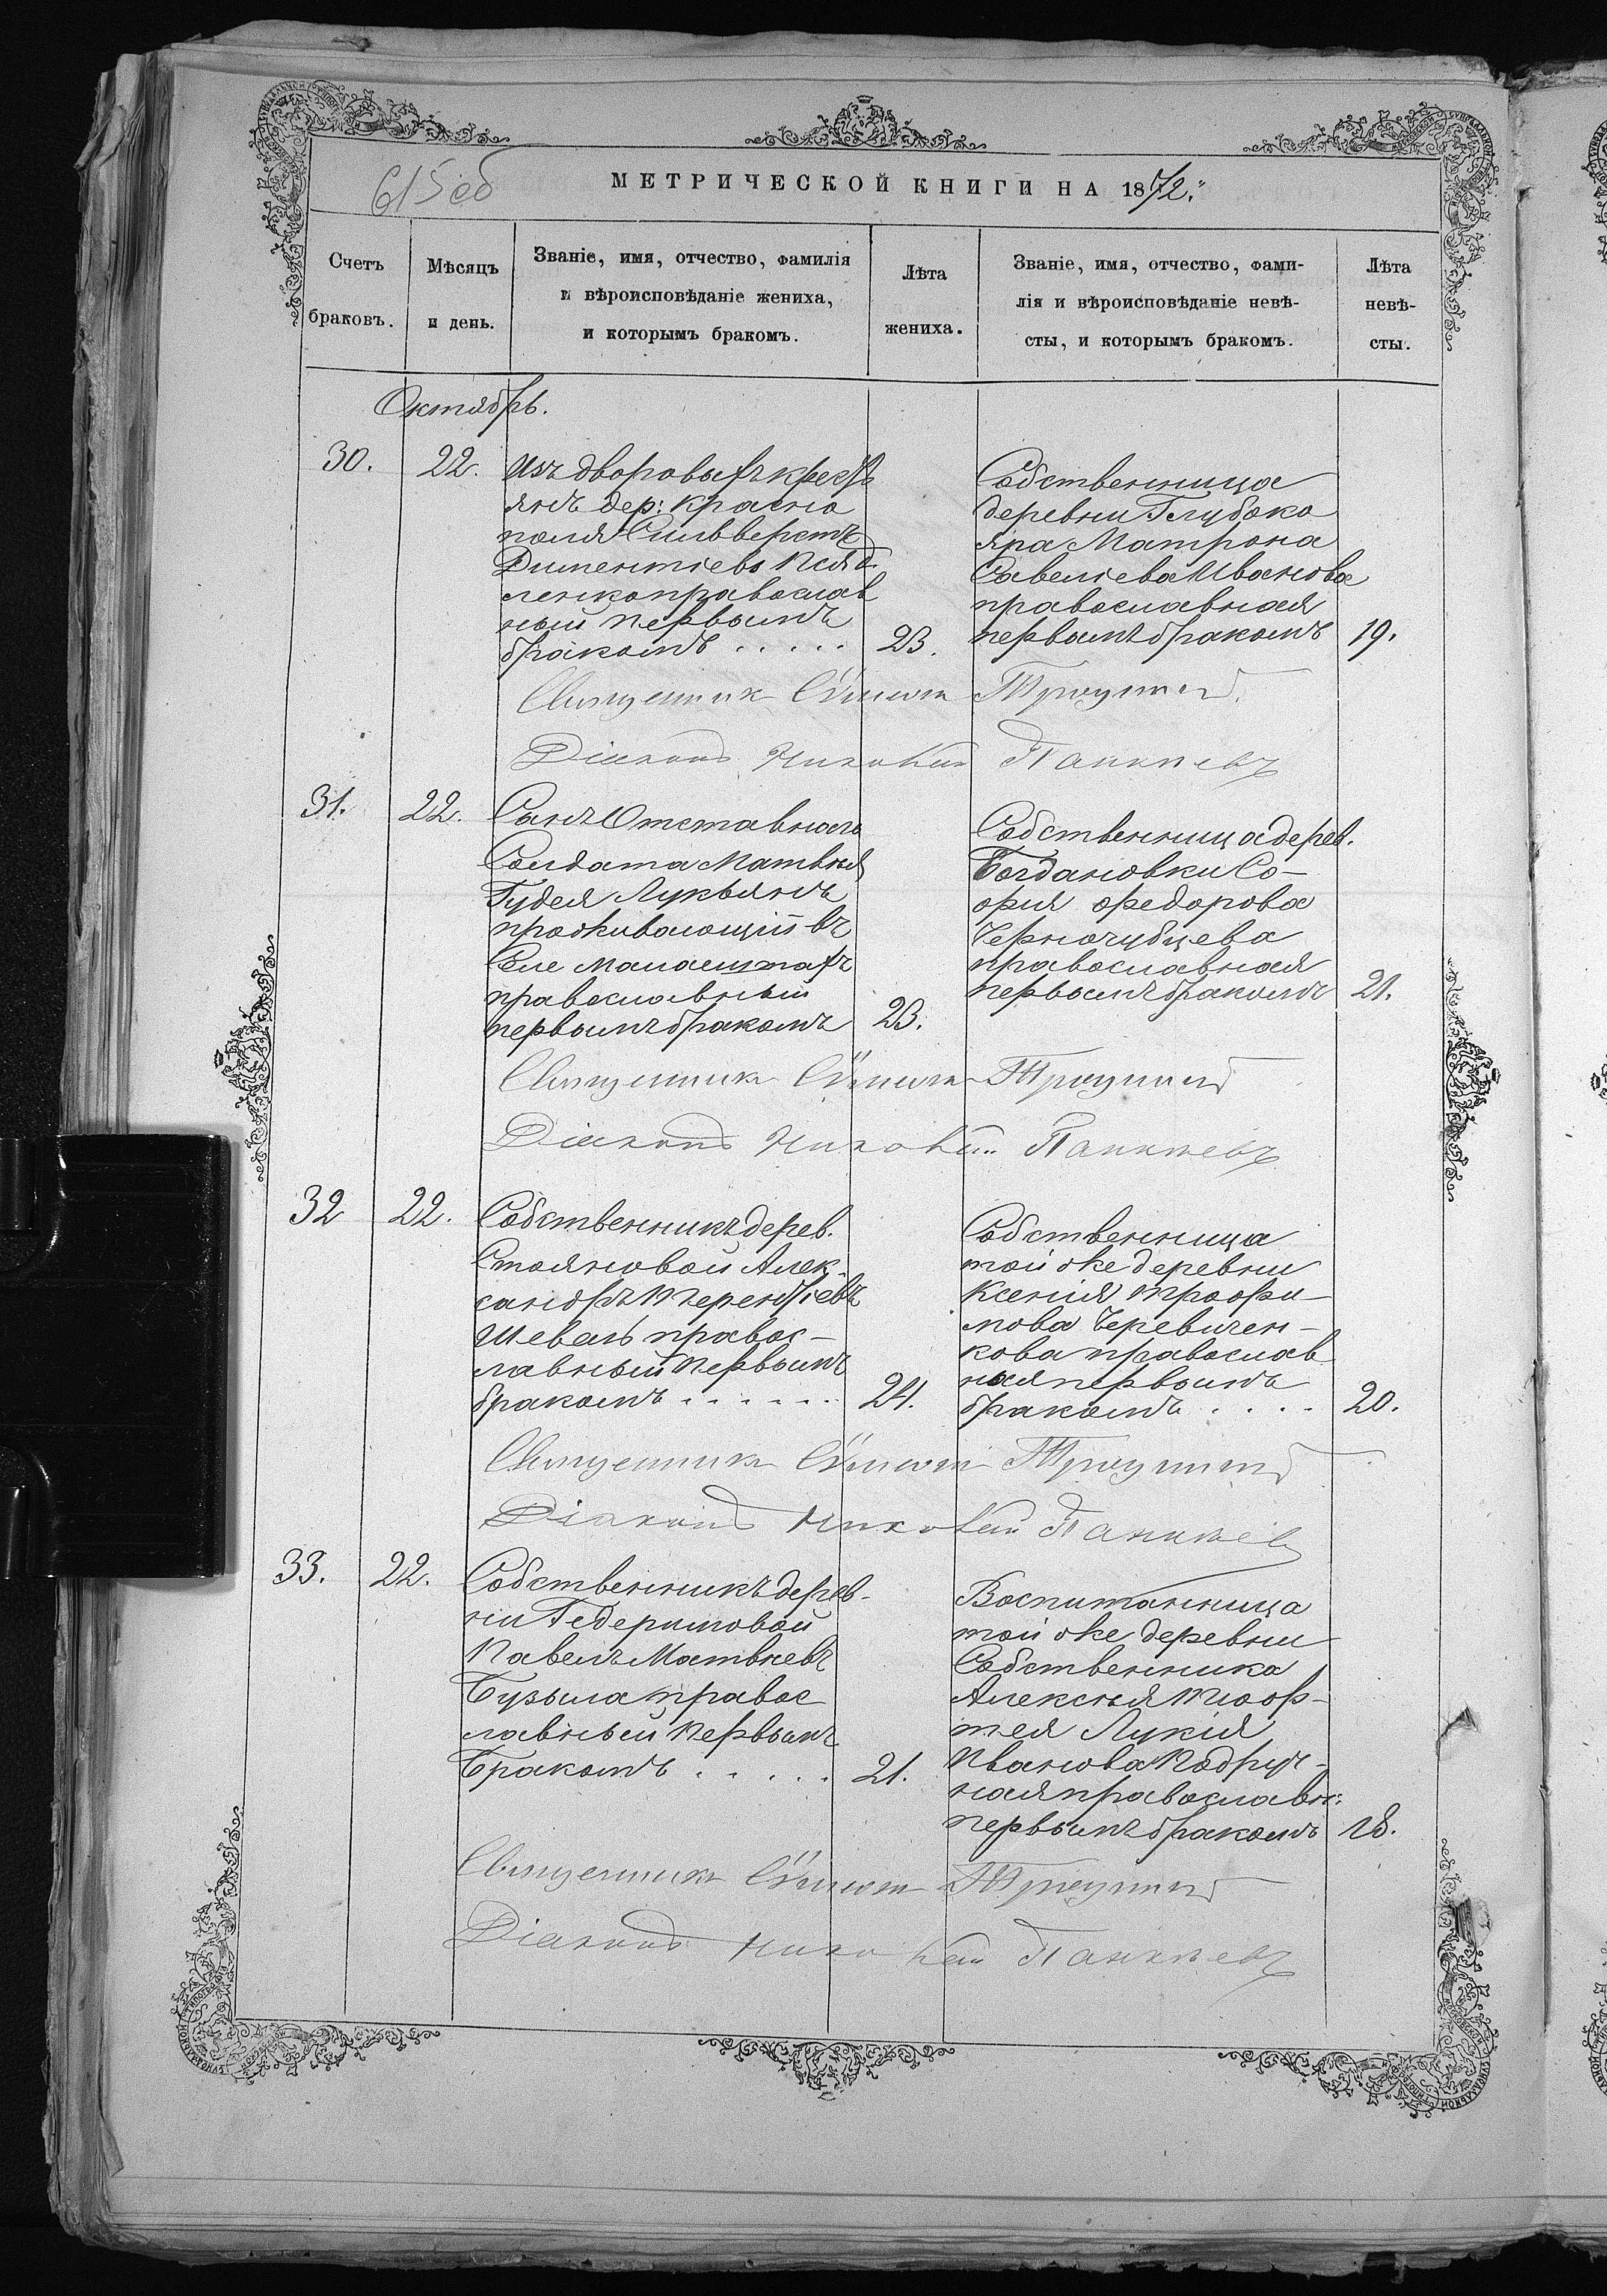 615 об
МЕТРИЧЕСКОЙ КНИГИ НА 1872.
Счетъ браковъ.
Мѣсяцъ и день.
Званіе, имя, отчество, фамилія
и вѣроисповѣданіе жениха,
и которымъ бракомъ.
Лѣта жениха.
Званіе, имя, отчество, фами-
лія и вѣроисповѣданіе невѣ-
сты, и которымъ бракомъ.
Лѣта невѣ-
сты.
Октябрь.
30.
22.
Изъ дворовыхъ кресть
янъ дер: Красно
поля Сильверстъ
Диментіевъ
ленко православ
ный первымъ
бракомъ . . . . .
23.
Собственница
деревни Глубоко
яра Матрона
Савеліева Иванова
православная
первымъ бракомъ
19.
Священник Троицкий
Діаконъ Николай
31.
22.
Сынъ Отставнаго
Солдата Матвѣя
Гудея Лукьянъ
проживающій въ
Селе Малаештахъ
православный
первымъ бракомъ
23.
Собственница дерев.
Богдановки Со-
фия Федорова
Черногубцева
православная
первымъ бракомъ
21.
Священник Троицкий
Діаконъ Николай
32
22.
Собственникъ дерев.
Стояновой Алек-
сандръ Терентіевъ
Шеваль правос-
лавный первымъ
бракомъ . . . . . .
24.
Собственница
той же деревни
Ксенія Трофи-
мова Черевичен-
кова православ
ная первымъ
бракомъ . . . .
20.
Священник Троицкий
Діаконъ Николай
33.
22.
Собственникъ дерев-
ни Гедеримовой
Павелъ Матвѣевъ
Бузыла правос
лавный первымъ
Бракомъ . . . . .
21.
Воспитанница
той же деревни
Собственника
Алексѣя Тиоф-
тея Лукія
Иванова Подруч-
ная православн:
первымъ бракомъ
18.
Священник Троицкий
Діаконъ Николай